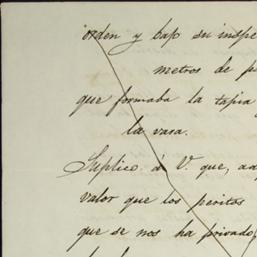 orden y bajo su inspe
metros de p
que formaba la tapia
la vasa.
Suplico á V. que, a
valor que los peritos
que se nos ha privado